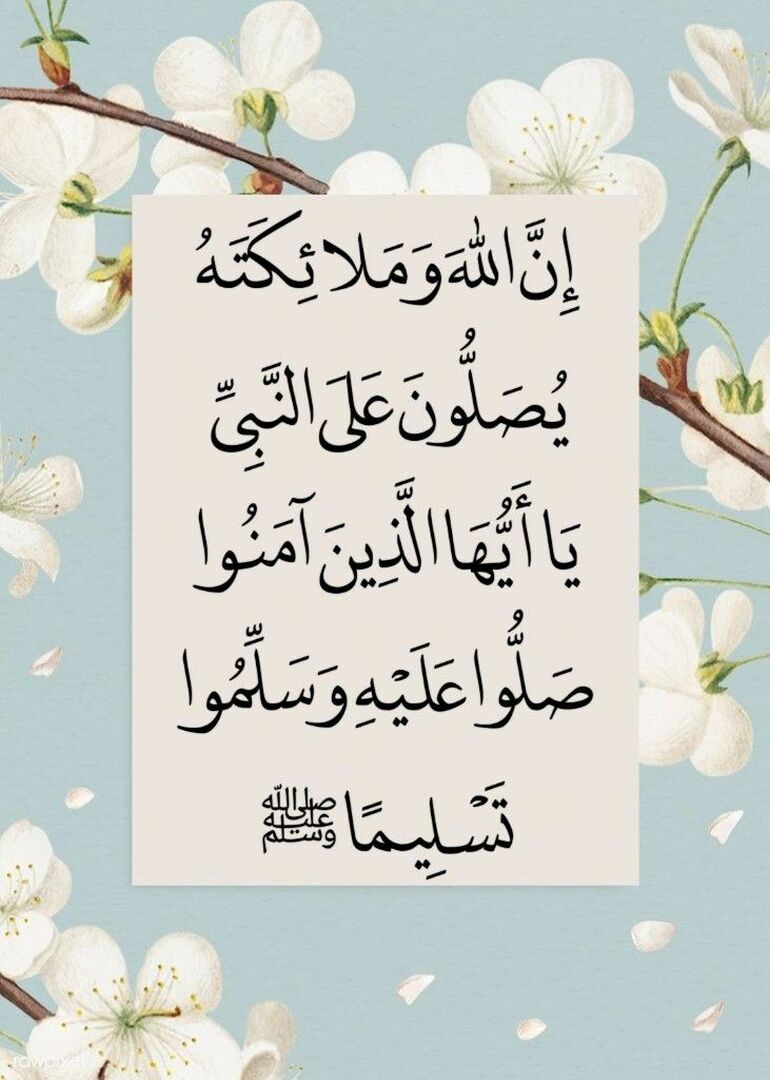 إِنَّ اللهَ وَمَلائِكَتَهُ
يُصَلُّونَ عَلَى النَّبِيِّ
يَا أَيُّهَا الَّذِينَ آمَنُوا
صَلُّوا عَلَيْهِ وَسَلِّمُوا
تَسْلِيمًا ﷺ
rawpixel